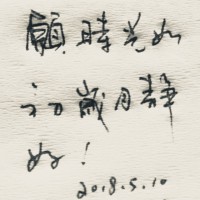 願時光如
初歲月靜
好！
2018.5.10